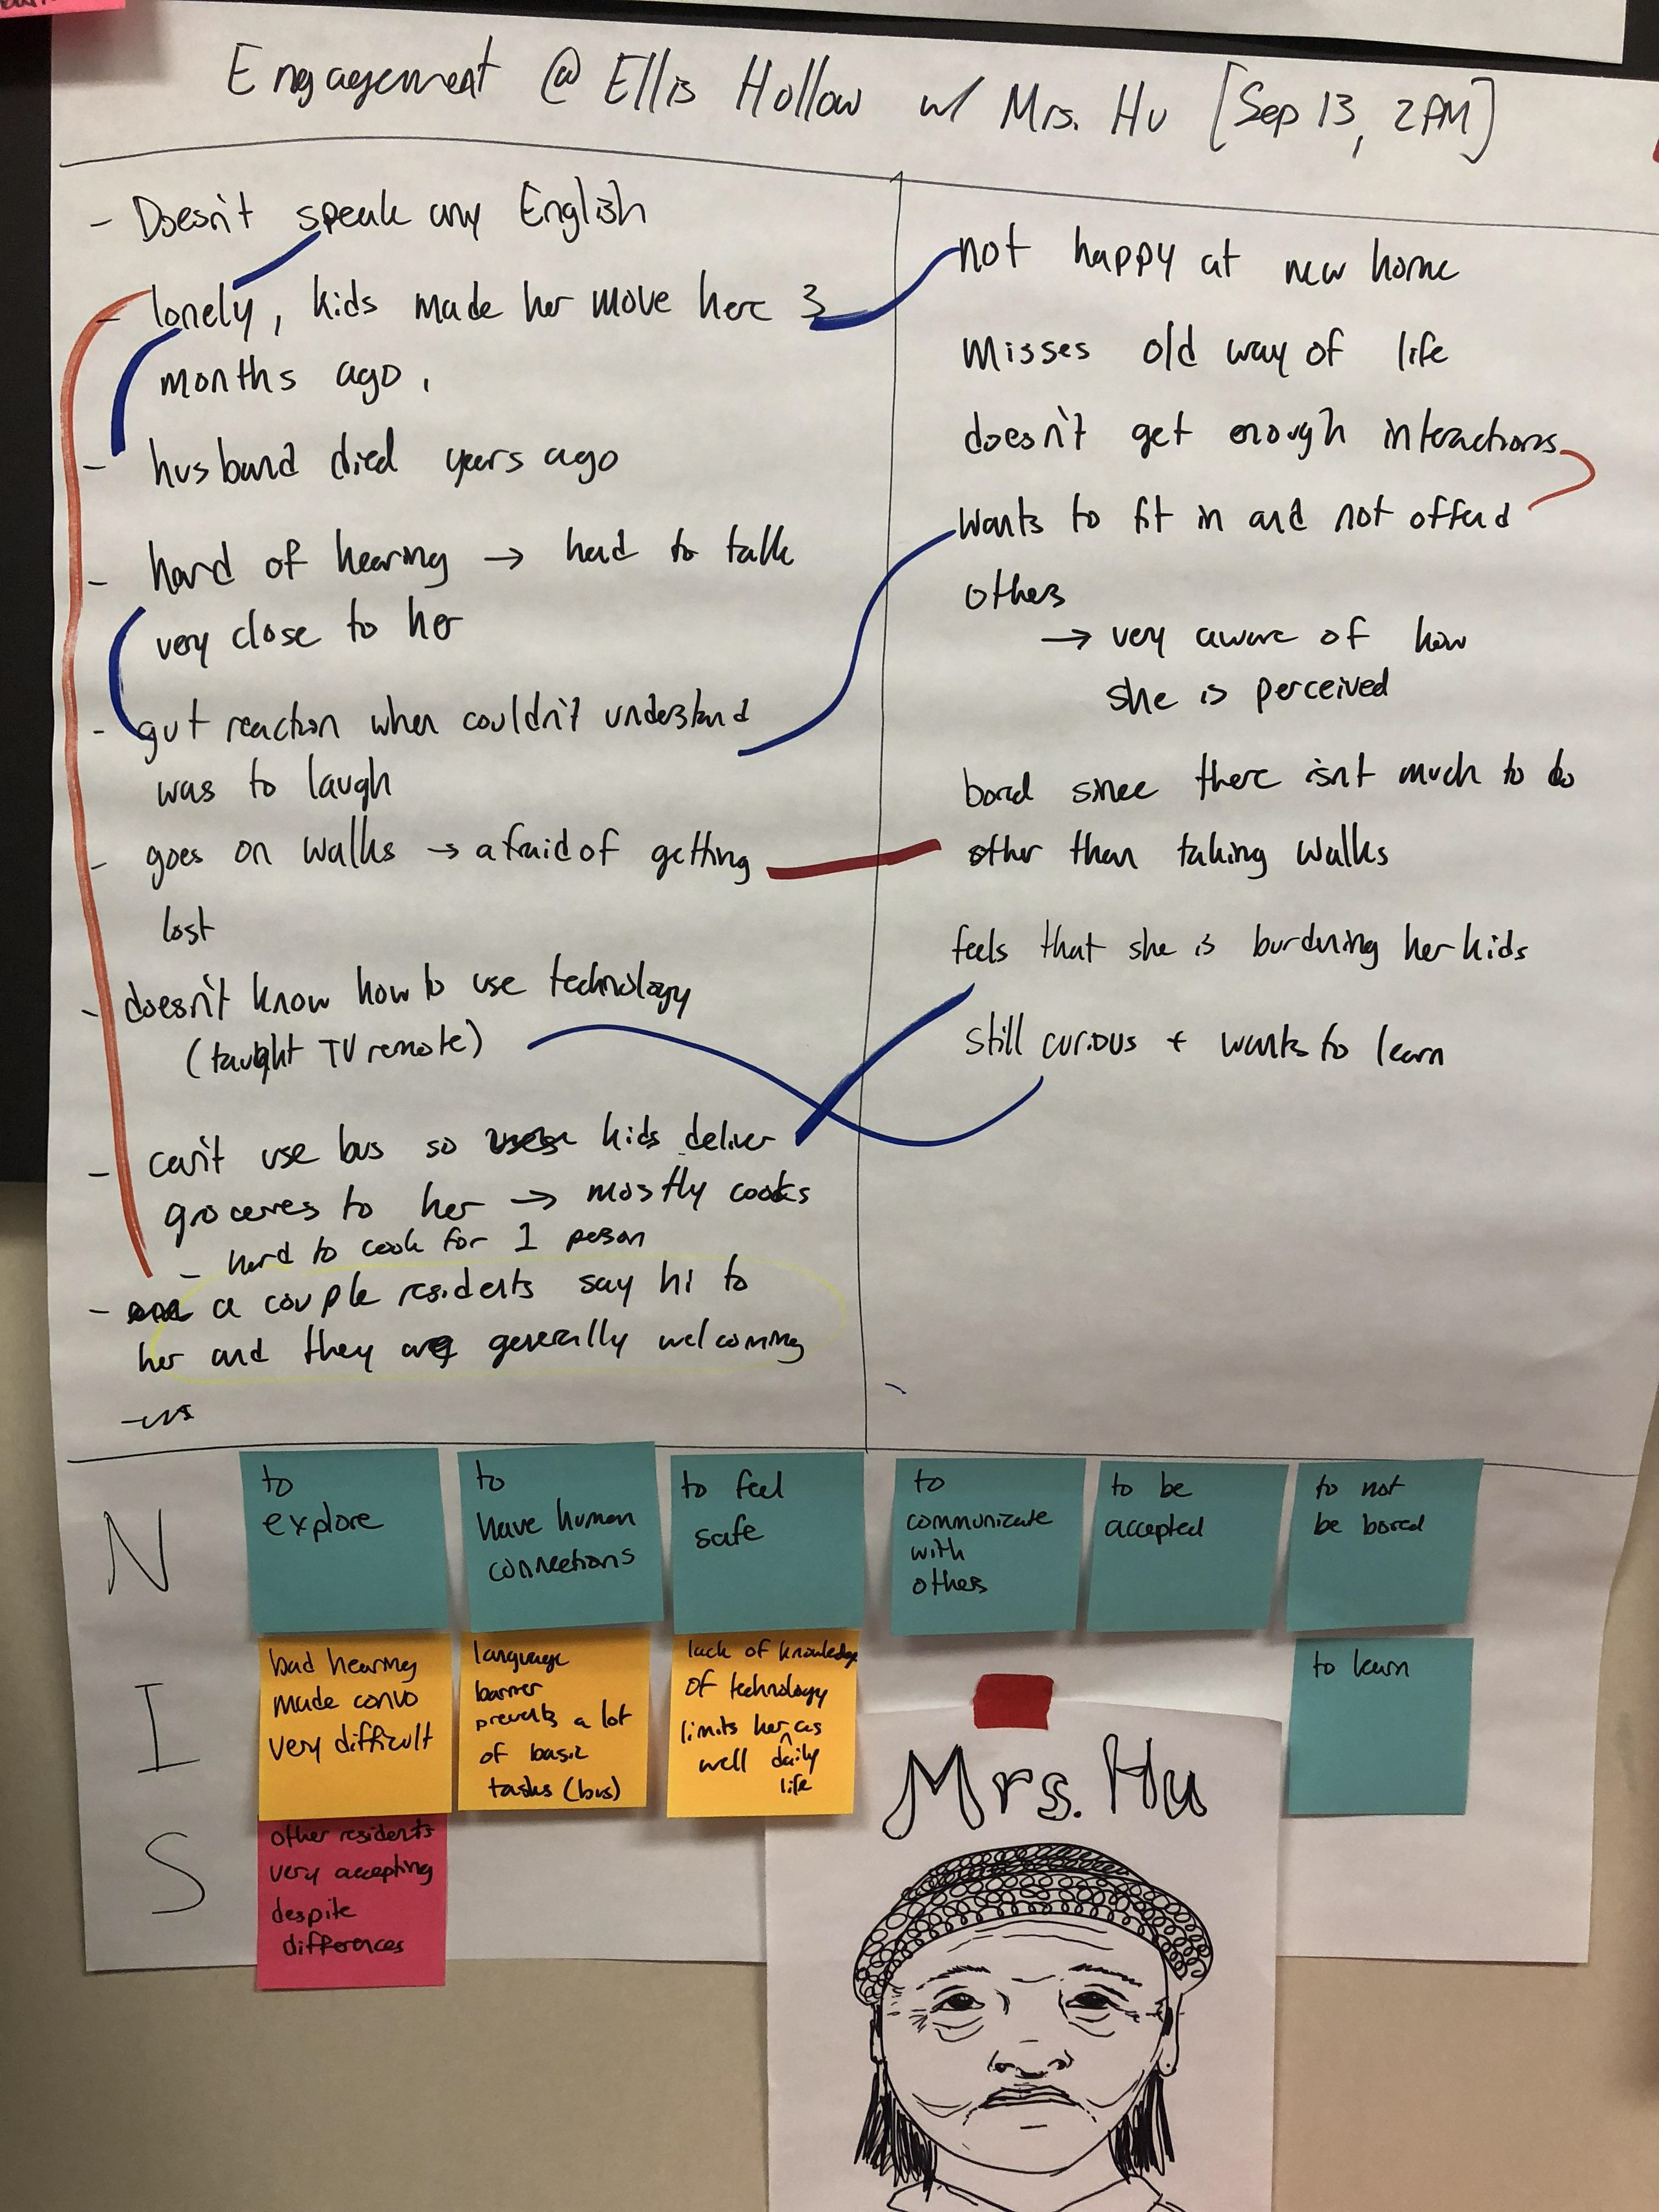 Engagement @ Ellis Hollow w/ Mrs. Hu [Sep 13, 2PM]
- Doesn't speak any English
- lonely, kids made her move here 3
months ago.
- husband died years ago
- hard of hearing → had to talk
very close to her
- gut reaction when couldn't understand
was to laugh
- goes on walks → afraid of getting
lost
- doesn't know how to use technology
(taught TV remote)
- can't use bus so kids deliver
groceries to her → mostly cooks
- hard to cook for 1 person
- a couple residents say hi to
her and they are generally welcoming
not happy at new home
Misses old way of life
doesn't get enough interactions
wants to fit in and not offend
others
→ very aware of how
she is perceived
bored since there isnt much to do
other than taking walks
feels that she is burduning her kids
still curious + wants to learn
N
to
explore
to
have human
connections
to feel
safe
to
communicate
with
others
to be
accepted
to not
be bored
I
bad hearing
made convo
very difficult
language
barrier
prevents a lot
of basic
tasks (bus)
lack of knowledge
of technology
limits her as
well daily
life
to learn
S
other residents
very accepting
despite
differences
Mrs. Hu